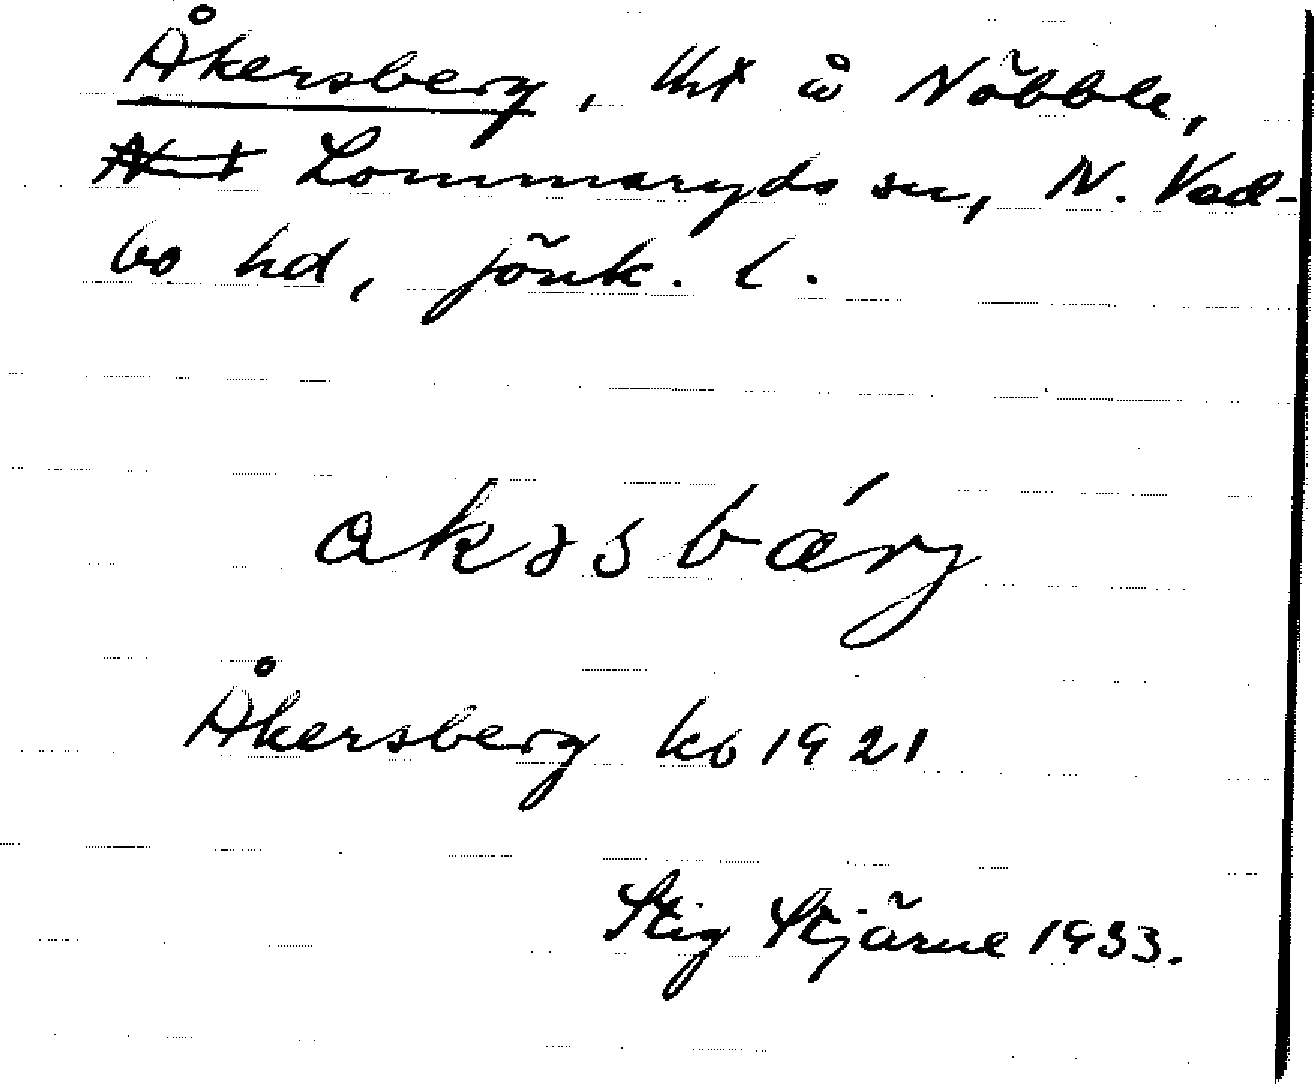 Åkersberg, tht å Nöbble,
Lommaryds sn, N. Ved-
bo hd, Jönk. l.
åkəsbærj
Åkersberg kb 1921
Stig Stjärne 1933.